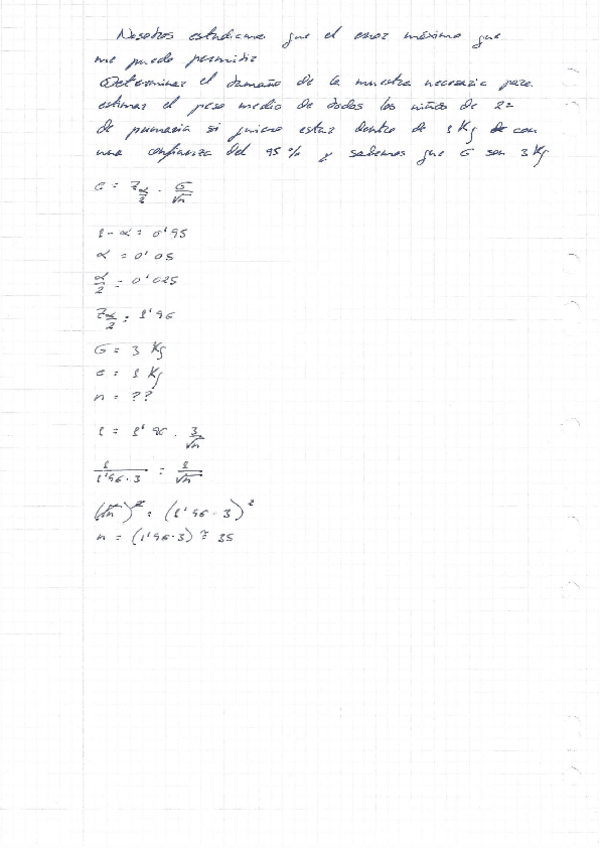 Nosotros estudiamos que el error máximo que
me puedo permitir
Determinar el tamaño de la muestra necesaria para
estimar el peso medio de todos los niños de 2º
de primaria si quiero estar dentro de 1 Kg de con
una confianza del 95 % y sabemos que σ son 3 Kg
e = Zα/2 · σ/√n
1 - α = 0'95
α = 0'05
α/2 = 0'025
Zα/2 = 1'96
σ = 3 Kg
e = 1 Kg
n = ??
1 = 1'96 · 3/√n
1/1'96·3 = 1/√n
(√n)² = (1'96 · 3)²
n = (1'96·3) ≅ 35